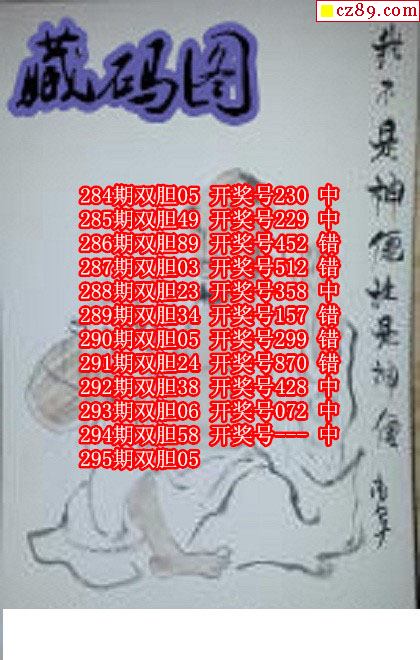 cz89.com
藏码图
284期双胆05 开奖号230 中
285期双胆49 开奖号229 中
286期双胆89 开奖号452 错
287期双胆03 开奖号512 错
288期双胆23 开奖号358 中
289期双胆34 开奖号157 错
290期双胆05 开奖号299 错
291期双胆24 开奖号870 错
292期双胆38 开奖号428 中
293期双胆06 开奖号072 中
294期双胆58 开奖号--- 中
295期双胆05
我不是神仙谁是神仙